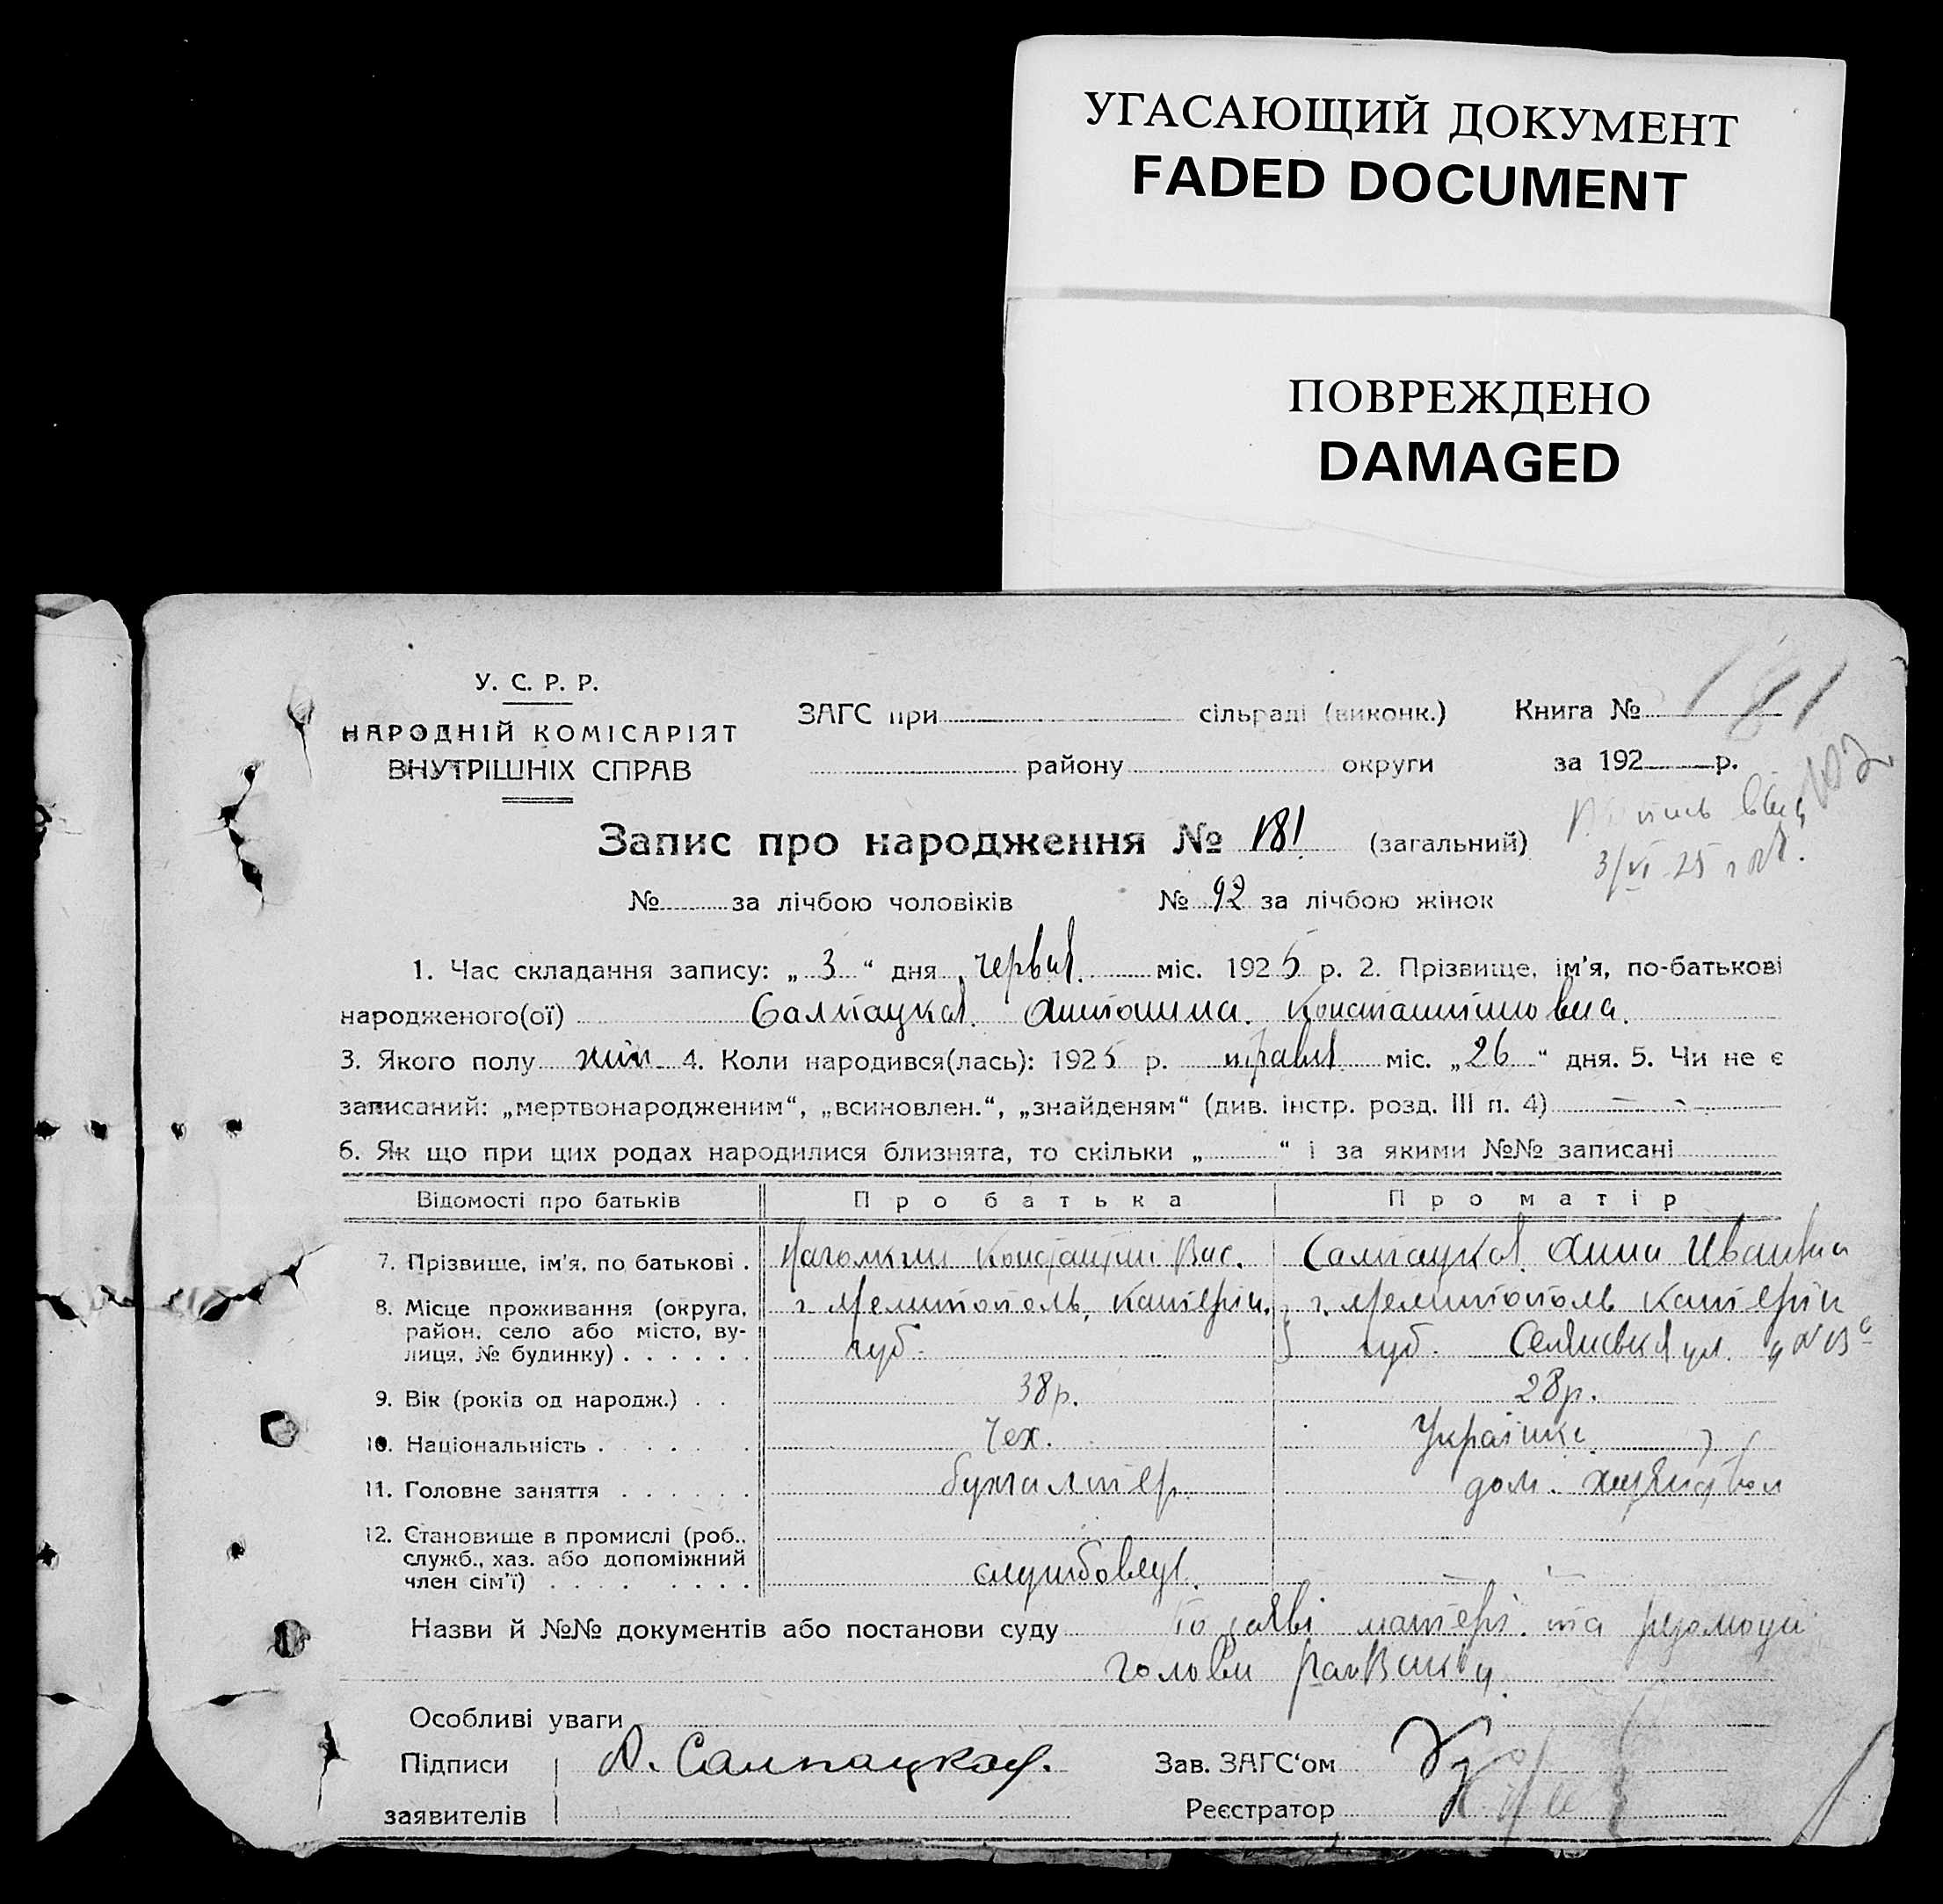 УГАСАЮЩИЙ ДОКУМЕНТ
FADED DOCUMENT
ПОВРЕЖДЕНО
DAMAGED
У. С. Р. Р.
НАРОДНІЙ КОМІСАРІЯТ
ВНУТРІШНІХ СПРАВ
ЗАГС при сільраді (виконк.)
району округи
Книга № 181
за 192 р.
102
Запис про народження № 181 (загальний)
3/VI 25
№ за лічбою чоловіків № 92 за лічбою жінок
1. Час складання запису: „ 3 “ дня червня міс. 1925 р. 2. Прізвище, ім'я, по-батькові
народженого(ої) Салпацкая Антонина Константиновна.
3. Якого полу жін. 4. Коли народився(лась): 1925 р. травня міс. „26“ дня. 5. Чи не є
записаний: „мертвонародженим“, „всиновлен.“, „знайденям“ (див. інстр. розд. III п. 4)
6. Як що при цих родах народилися близнята, то скільки „ “ і за якими №№ записані
Відомості про батьків Про батька Про матір
7. Прізвище, ім'я, по батькові . Константин Вас. Салпацкая Анна Ивановна
8. Місце проживання (округа, район, село або місто, вулиця, № будинку) . . . . . .
г. Мелитополь, Катерин.
губ.
г. Мелитополь Катерин
губ. ул.
9. Вік (років од народж.) . . 38 р. 28 р.
10. Національність . . . . . Чех. Українка
11. Головне заняття . . . . . . бухгалтер. дом. хазяйство
12. Становище в промислі (роб., служб., хаз. або допоміжний член сім'ї) . . . . . . . . службовець.
Назви й №№ документів або постанови суду По заяві матері та резолюції
голови
Особливі уваги
Підписи А. Салпацкая. Зав. ЗАГС'ом
заявителів Реєстратор